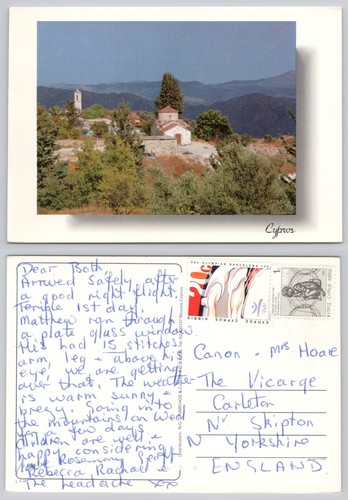 Cyprus
Dear Both
Arrived safely after
a good night flight
Terrible 1st day.
Matthew ran through
a plate glass window
He's had 15 stitches
arm leg + above his
eye, we are getting
over that. The weather
is warm sunny +
breezy, going into
the mountains on Wed
for a few days
children are well +
happy considering
Love Rosemary, Geoff
Rebecca Rachael +
The headache xox
Canon + Mrs Hoare
The Vicarge
Carleton
Nr Skipton
N Yorkshire
ENGLAND.